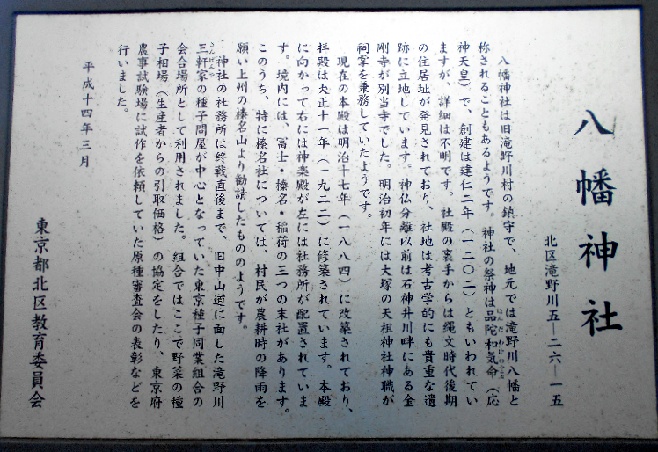 八幡神社
北区滝野川五―二六―一五
八幡神社は旧滝野川村の鎮守で、地元では滝野川八幡と
称されることもあるようです。神社の祭神は品陀和気命（応
神天皇）で、創建は建仁二年（一二〇二）ともいわれてい
ますが、詳細は不明です。社殿の裏手からは縄文時代後期
の住居址が発見されており、社地は考古学的にも貴重な遺
跡に立地しています。神仏分離以前は石神井川畔にある金
剛寺が別当寺でした。明治初年には大塚の天祖神社神職が
祠掌を兼務していたようです。
現在の本殿は明治十七年（一八八四）に改築されており、
拝殿は大正十一年（一九二二）に修築されています。本殿
に向かって右には神楽殿が左には社務所が配置されていま
す。境内には、冨士・榛名・稲荷の三つの末社があります。
このうち、特に榛名社については、村民が農耕時の降雨を
願い上州の榛名山より勧請したもののようです。
神社の社務所は終戦直後まで、旧中山道に面した滝野川
三軒家の種子問屋が中心となっていた東京種子同業組合の
会合場所として利用されました。組合ではここで野菜の種
子相場（生産者からの引取価格）の協定をしたり、東京府
農事試験場に試作を依頼していた原種審査会の表彰などを
行いました。
平成十四年三月
東京都北区教育委員会